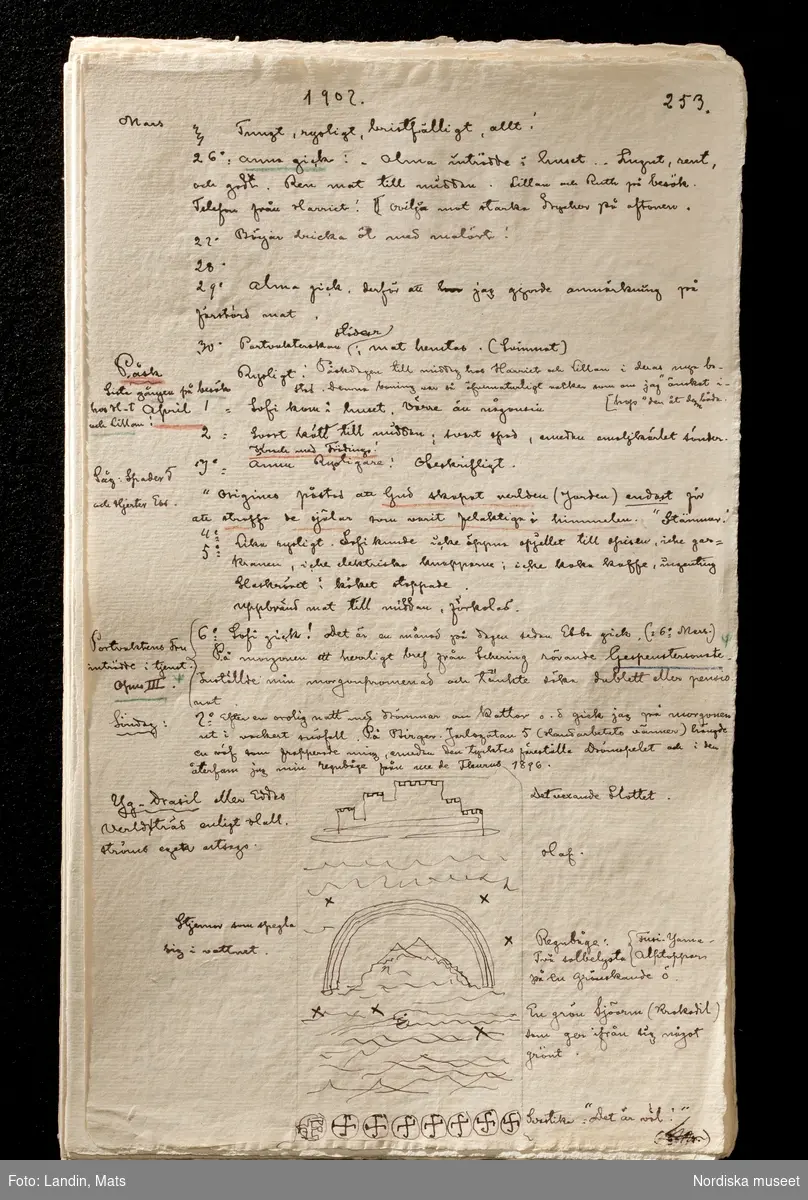 1907.
253.
Mars
Tungt, rysligt, bristfälligt, allt!
26°: Anna gick! - Alma inträdde i huset. - Lugnt, rent,
och godt. Ren mat till middan. Lillan och Ruth på besök.
Telefon från Harriet! ovilja mot starka drycker på aftonen.
27° Börjar dricka öl med malört!
28°
29° Alma gick, derför att jag gjorde anmärkning på
förstörd mat.
30° Portvakterskan städar; mat hemtas. (Svinmat)
Påsk
Rysligt! Påskdagen till middag hos Harriet och Lillan i deras nya bo-
Sista gången på besök
stad. Denna våning var så öfvernaturligt vacker som om jag "önskat i-
[hop" den åt dem båda.
hos H-t
och Lillan!
April 1° Sofi kom i huset. Värre än någonsin
2° Svart kött till middan; svart spad, emedan emaljkärlet sönder.
3° Ännu Rysligare! Obeskrifligt.
Såg: Spader 5
och Hjerter Ess.
"Origines påstod att Gud skapat verlden (Jorden) endast för
att straffa de själar som varit felaktiga i himmelen. "Stämmer!"
4°
5° Lika rysligt. Sofi kunde icke öppna spjellet till spisen, icke gas-
kranen, icke elektriska knapparne; icke koka kaffe, ingenting
Slaskröret i köket stoppade.
Uppbränd mat till middan, förkolad.
Portvaktens fru
inträdde i tjenst.
Opus III.
6° Sofi gick! Det är en månad på dagen sedan Ebba gick. (: 6° Mars.)
På morgonen ett herrligt bref från Schering rörande Gespenstersonate.
Inställde min morgonpromenad och tänkte söka dublett eller pensio
nat
Söndag:
7° Efter en orolig natt med drömmar om Kattor o.s gick jag på morgonen
ut i vackert snöfall. På Birger-Jarlsgatan 5 (Handarbetets vänner) hängde
en väf som frapperade mig, emedan den tycktes föreställa Drömspelet och i den
återfann jag min regnbåge från rue de Fleurus 1896.
Yg-Drasil eller Eddas
Verldsträd enligt Hall-
ströms egen utsago.
Det vexande Slottet.
Haf.
Stjernor som spegla
sig i vattnet.
Regnbåge:
Två solbelysta
{Fusi-Yama-
Alptoppar
på en grönskande ö.
En grön Sjöorm (Krokodil)
som ger ifrån sig något
grönt.
Svastika = "Det är väl!"
Foto: Landin, Mats
Nordiska museet